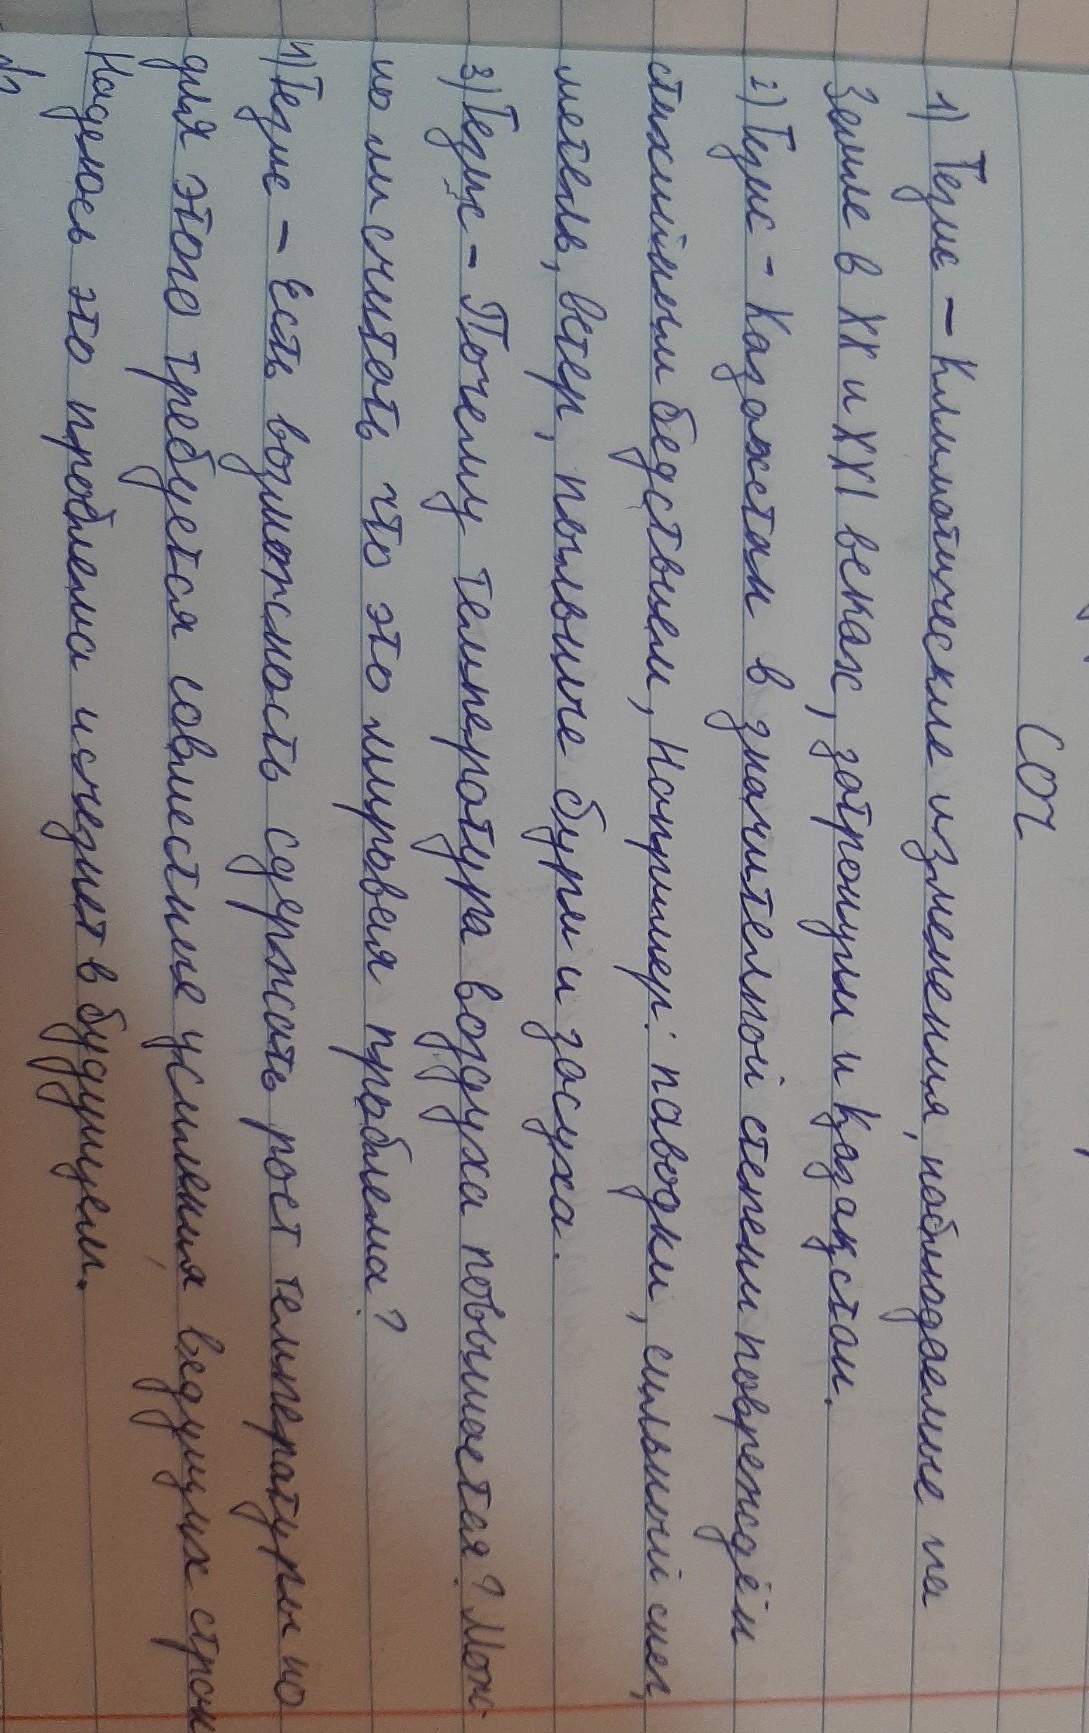 СОЧ
1) Тезис – Климатические изменения, наблюдаемые на
Земле в XX и XXI веках, затронули и Казахстан.
2) Тезис - Казахстан в значительной степени повреждён
стихийным бедствием, Например: паводки, сильный снег,
метель, ветер, пыльные бури и засуха.
3) Тезис – Почему температура воздуха повышается? Мож-
но ли считать что это мировая проблема?
4) Тезис – Есть возможность сдержать рост температуры но
для этого требуется совместные усиления ведущих стран
Надеюсь это проблема исчезнет в будущем.